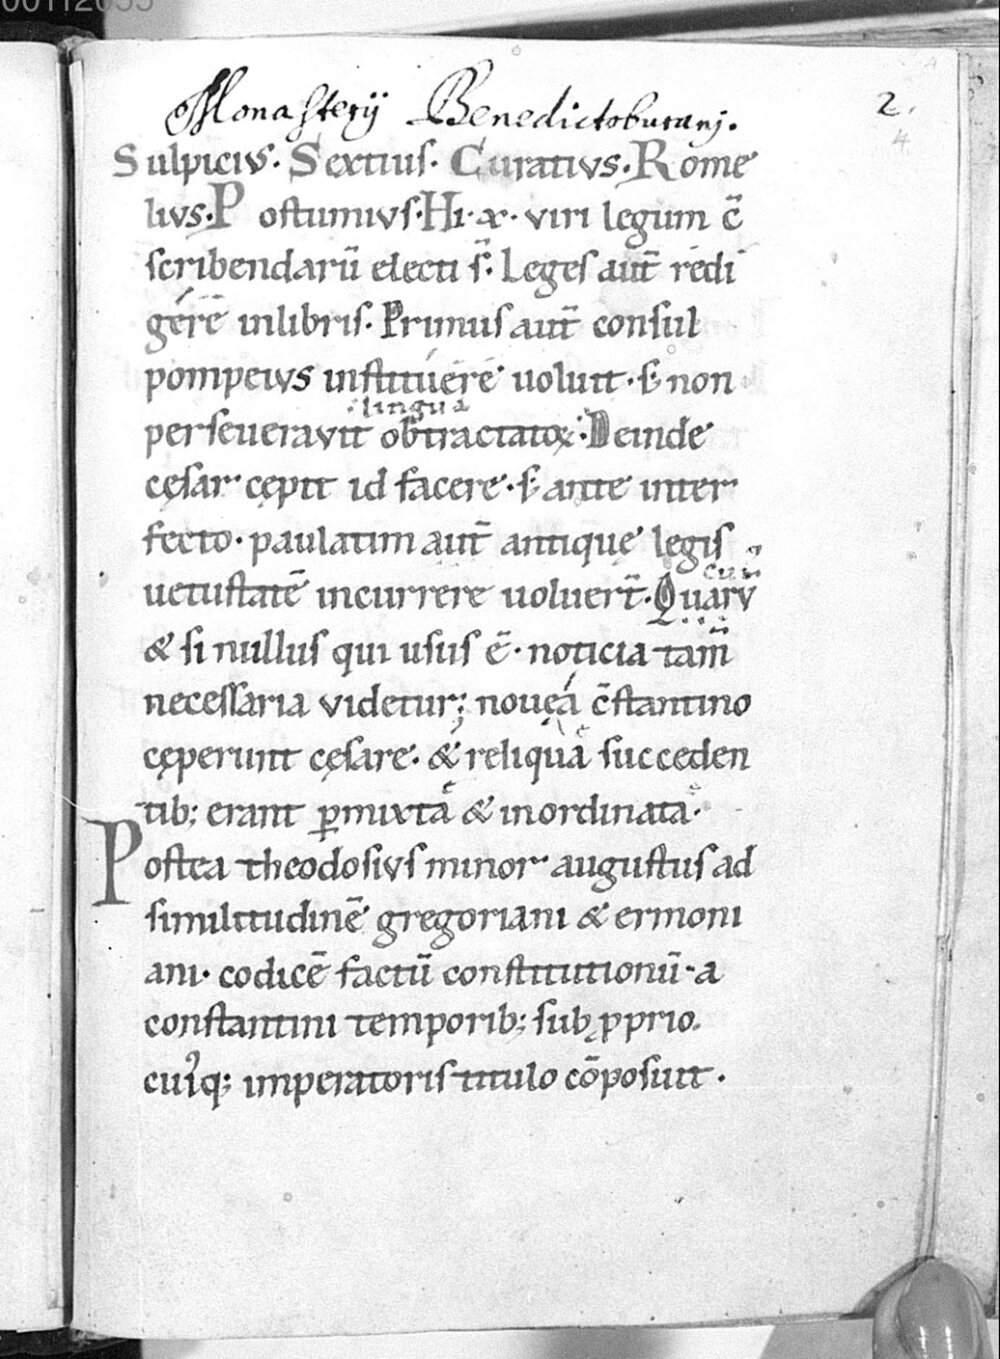 Monasterij Benedictoburanj.
2.
4
Sulpicius. Sextius. Curativs. Rome
livs. Postumivs. Hi. x. viri legum c̄
scribendarū electi s̄. Leges aut̄ redi
gerē in libris. Primus aut̄ consul
pompeivs instituere uoluit. s; non
lingua
perseueravit obtractatoꝝ. Deinde
cęsar cępit id facere. s; ante inter
fecto. paulatim aut̄ antique legis
uetustatē incurrere uoluer̄t. Quarv
cum
& si nullus qui usus ē. noticia tam̄
necessaria videtur; nouea c̄stantino
cęperunt cęsare. & reliqua succeden
tib; erant ꝑmixta & inordinata.
Postea theodosivs minor augustus ad
similitudinē gregoriani & ermoni
ani. codicē factū constitutionū. a
constantini temporib; sub pprio.
cuiq; imperatoris titulo cōposuit.